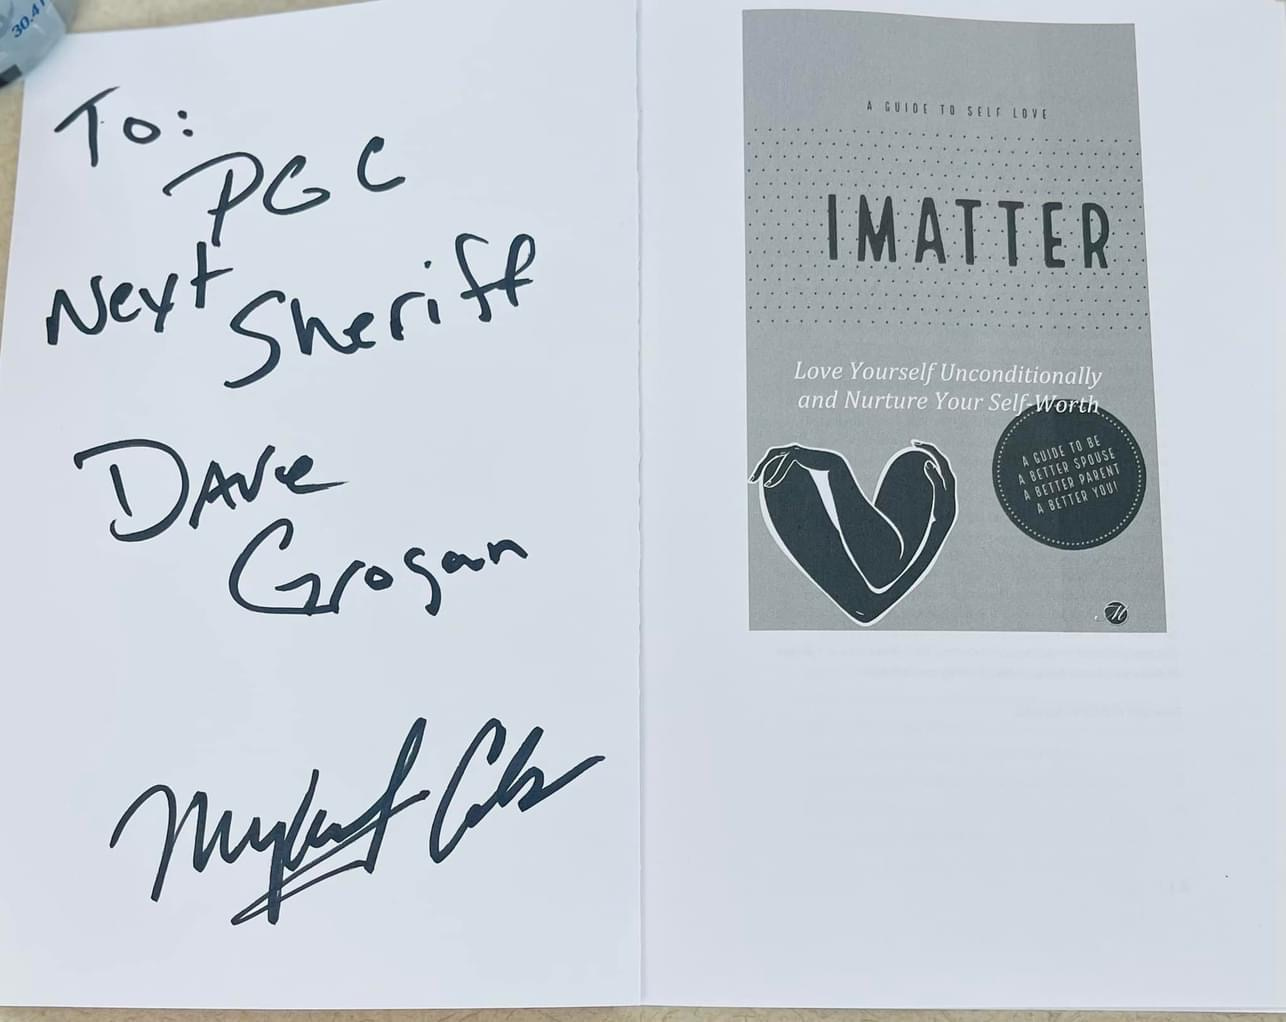 30.4
To:
PGC
Next
Sheriff
Dave
Grogan
A GUIDE TO SELF LOVE
IMATTER
Love Yourself Unconditionally
and Nurture Your Self-Worth
A GUIDE TO BE
A BETTER SPOUSE
A BETTER PARENT
A BETTER YOU!